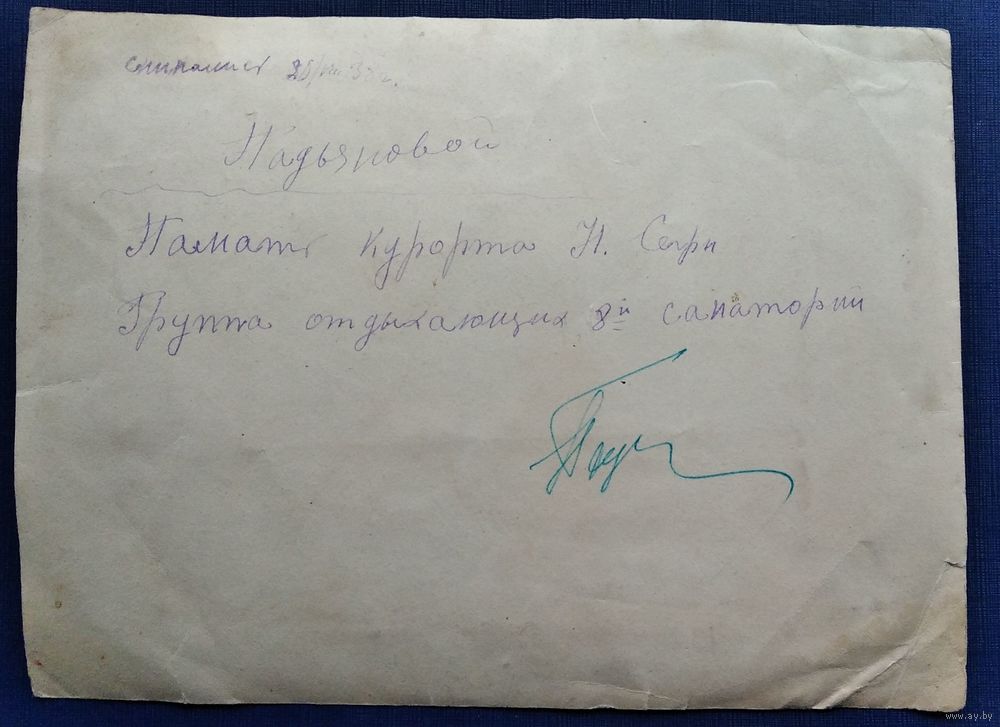 снимались 25/VIII 38 г.
Надьяновой
Память курорта Н. Серги
Группа отдыхающих 8й санаторий
www.ay.by